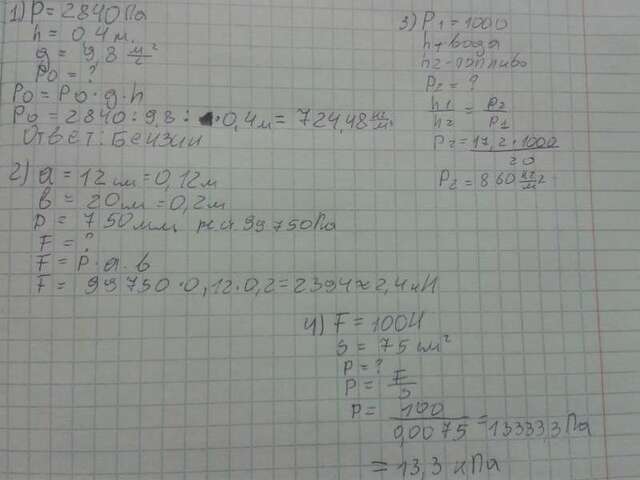 1) P = 2840 Па
h = 0,4 м.
g = 9,8 м²/с
Po = ?
Po = Po · g · h
Po = 2840 : 98 : · 0,4 м = 724,48 кг/м³
Ответ: Бензин
2) a = 12 см = 0,12 м
в = 20 см = 0,2 м
p = 750 мм рт ст 99750 Па
F = ?
F = P · a · в
F = 99750 · 0,12 · 0,2 = 2394 ≈ 2,4 кН
3) P₁ = 1000
h₁ вода
h₂ - топливо
P₂ = ?
h₁/h₂ = P₂/P₁
P₂ = 17,2 · 1000/20
P₂ = 860 кг/м²
4) F = 100 Н
s = 75 см²
P = ?
P = F/s
P = 100/0,0075 = 13333,3 Па
= 13,3 кПа